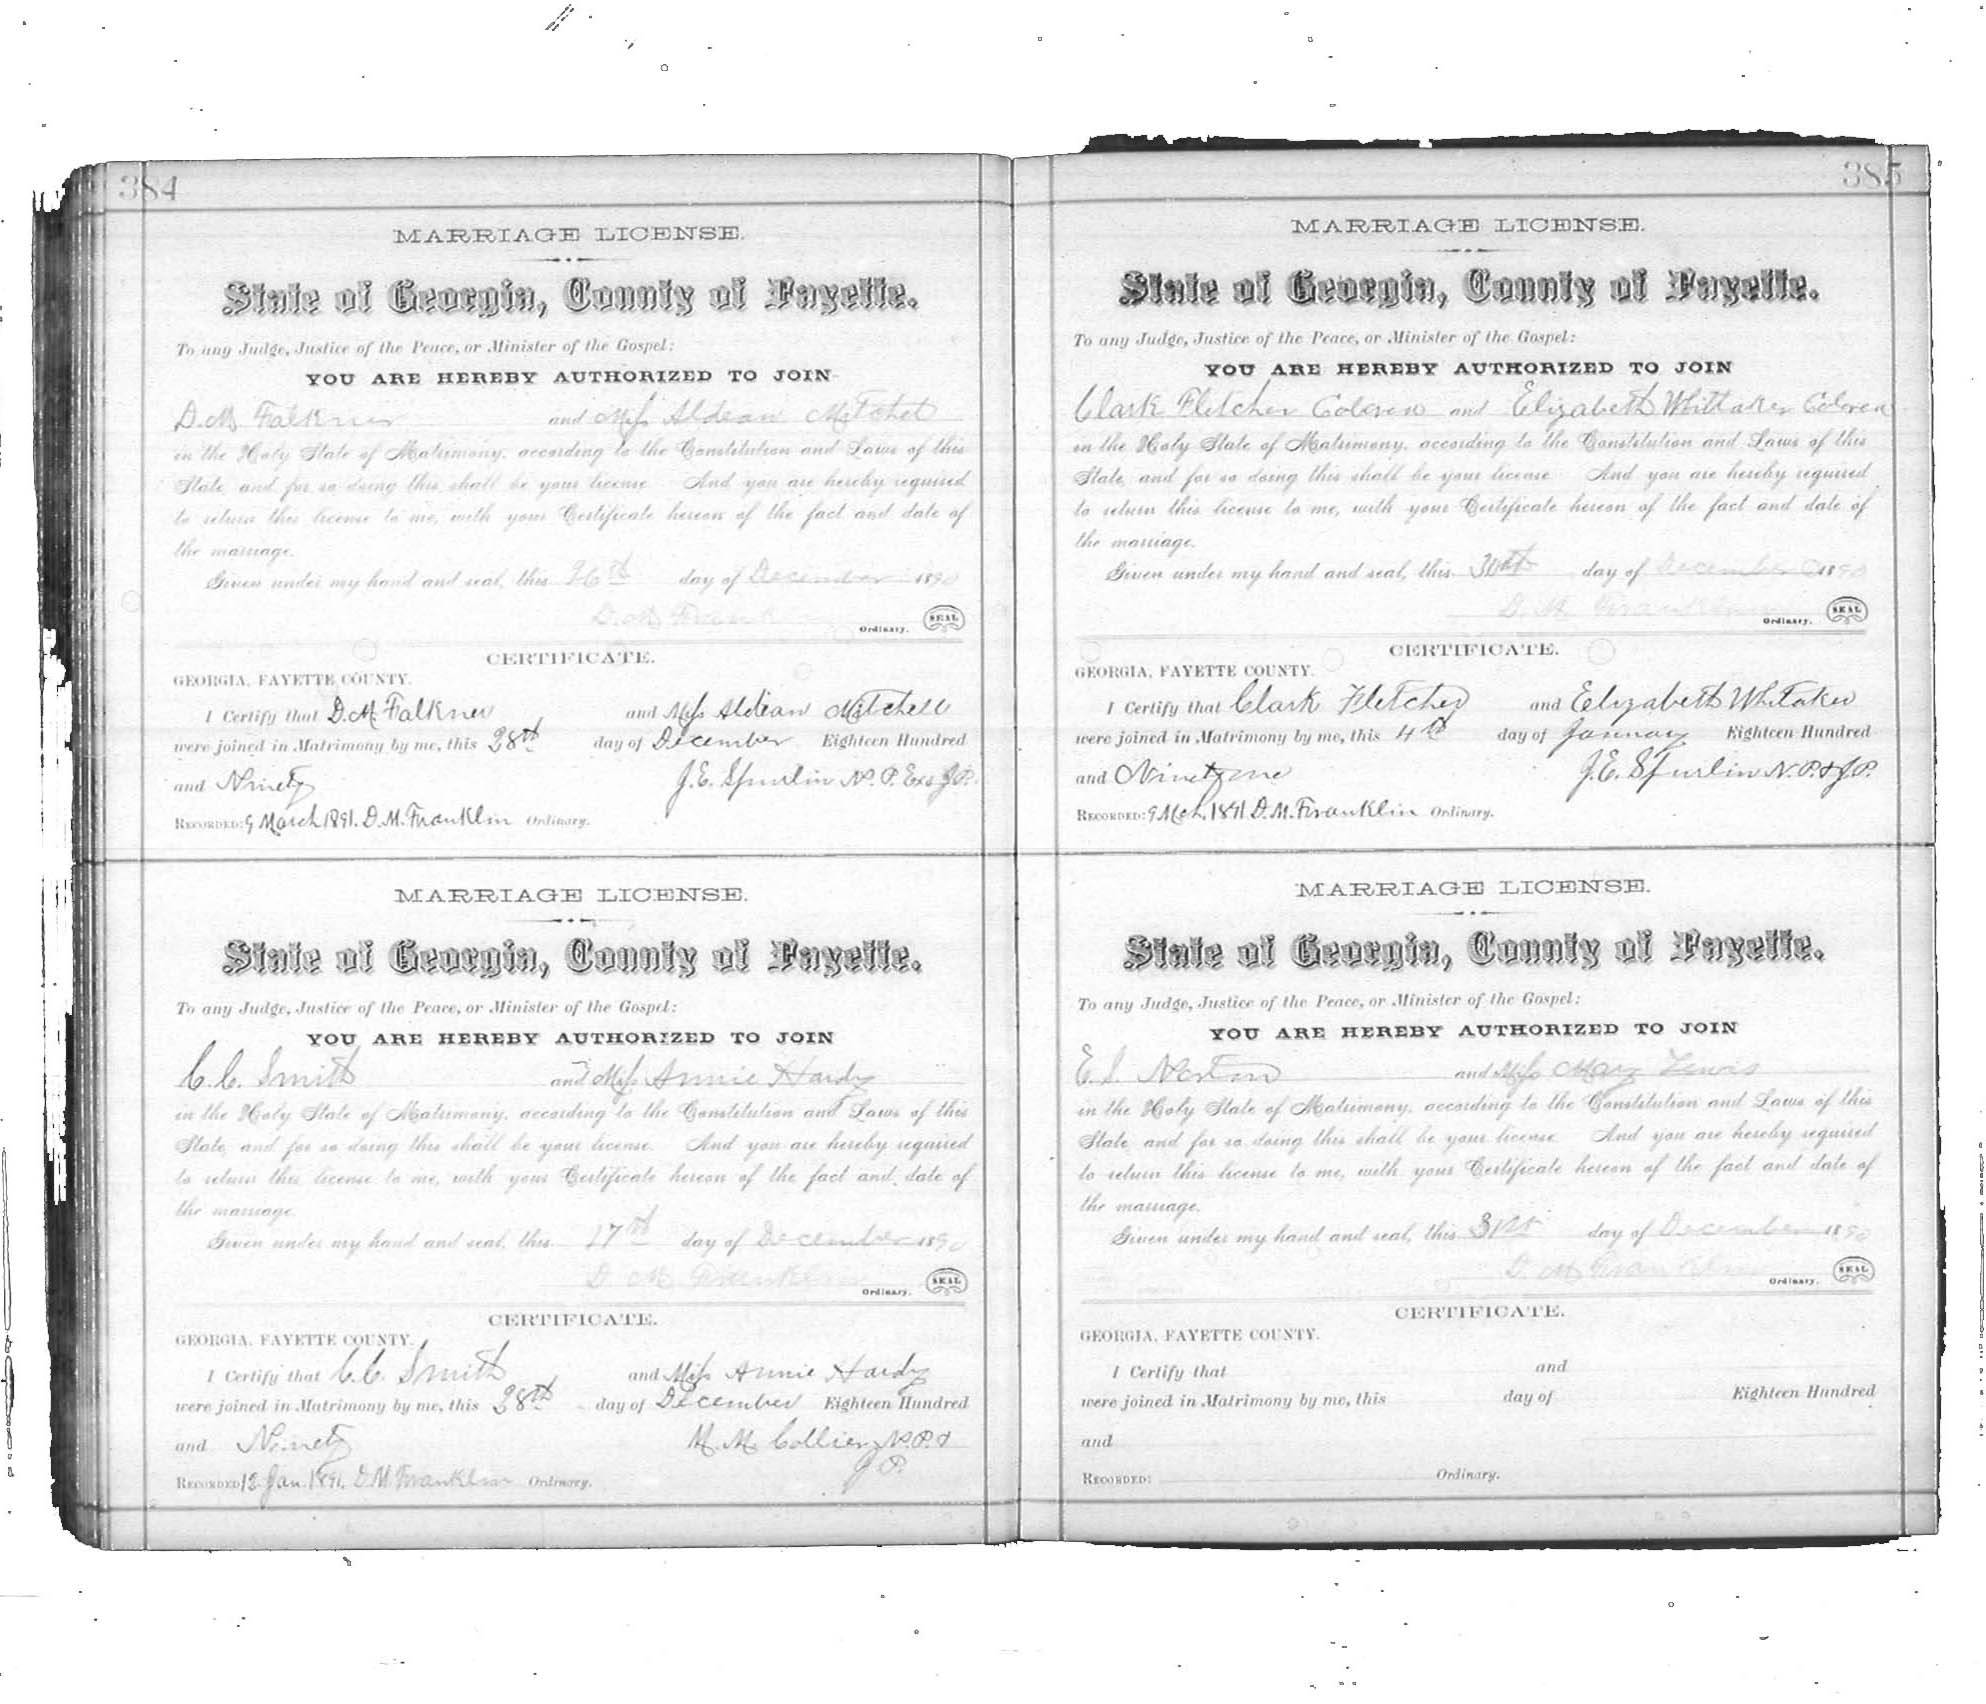 384
MARRIAGE LICENSE.
State of Georgia, County of Fayette.
To any Judge, Justice of the Peace, or Minister of the Gospel:
YOU ARE HEREBY AUTHORIZED TO JOIN
D. M. Falkner and Miss Aldean Mitchel
in the Holy State of Matrimony, according to the Constitution and Laws of this
State, and for so doing this shall be your license. And you are hereby required
to return this license to me, with your Certificate hereon of the fact and date of
the marriage.
Given under my hand and seal, this 26th day of December 1890
D. M. Franklin
Ordinary. SEAL
CERTIFICATE.
GEORGIA, FAYETTE COUNTY.
I Certify that D. M. Falkner and Miss Aldean Mitchell
were joined in Matrimony by me, this 28th day of December Eighteen Hundred
and Ninety J. E. Spurlin N. P. Exo J. P.
RECORDED: 9 March 1891. D. M. Franklin Ordinary.
MARRIAGE LICENSE.
State of Georgia, County of Fayette.
To any Judge, Justice of the Peace, or Minister of the Gospel:
YOU ARE HEREBY AUTHORIZED TO JOIN
C. C. Smith and Miss Annie Hardy
in the Holy State of Matrimony, according to the Constitution and Laws of this
State, and for so doing this shall be your license. And you are hereby required
to return this license to me, with your Certificate hereon of the fact and date of
the marriage.
Given under my hand and seal, this 17th day of December 1890
D. M. Franklin
Ordinary. SEAL
CERTIFICATE.
GEORGIA, FAYETTE COUNTY.
I Certify that C. C. Smith and Miss Annie Hardy
were joined in Matrimony by me, this 28th day of December Eighteen Hundred
and Ninety M. M. Collier N. P. &
J. P.
RECORDED 12 Jan. 1891. D. M. Franklin Ordinary.
385
MARRIAGE LICENSE.
State of Georgia, County of Fayette.
To any Judge, Justice of the Peace, or Minister of the Gospel:
YOU ARE HEREBY AUTHORIZED TO JOIN
Clark Fletcher Colered and Elizabeth Whittaker Colered
in the Holy State of Matrimony, according to the Constitution and Laws of this
State, and for so doing this shall be your license. And you are hereby required
to return this license to me, with your Certificate hereon of the fact and date of
the marriage.
Given under my hand and seal, this 30th day of December 1890
D. M. Franklin
Ordinary. SEAL
CERTIFICATE.
GEORGIA, FAYETTE COUNTY.
I Certify that Clark Fletcher and Elizabeth Whitaker
were joined in Matrimony by me, this 4th day of January Eighteen Hundred
and Ninety one J. E. Spurlin N. P. & J. P.
RECORDED: 9 Mch, 1891. D. M. Franklin Ordinary.
MARRIAGE LICENSE.
State of Georgia, County of Fayette.
To any Judge, Justice of the Peace, or Minister of the Gospel:
YOU ARE HEREBY AUTHORIZED TO JOIN
E. S. Norton and Miss Mary Lewis
in the Holy State of Matrimony, according to the Constitution and Laws of this
State, and for so doing this shall be your license. And you are hereby required
to return this license to me, with your Certificate hereon of the fact and date of
the marriage.
Given under my hand and seal, this 31st day of December 1890
D. M. Franklin
Ordinary. SEAL
CERTIFICATE.
GEORGIA, FAYETTE COUNTY.
I Certify that and
were joined in Matrimony by me, this day of Eighteen Hundred
and
RECORDED: Ordinary.